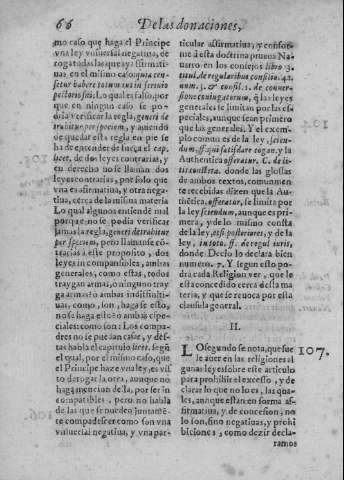 66 De las donaciones,
mo caso que haga el Principe
vna ley vniuersal negatiua, de
rogatodas las que ay affirmati-
uas, en el mismo caso quia cen-
setur habere tota iura in scrinio
pectoris sui; Lo qual es falso, por
que en ningun caso se po-
dria verificar la regla, generi de
rogatur per speciem, y auiendo
de quedar esta regla en pie se
ha de entender de hazer el cap.
licet, de dos leyes contrarias, y
en derecho no se llaman dos
leyes contrarias, por solo que
vna es afirmatiua, y otra nega-
tiua, cerca de la misma materia
Lo qual algunos entiende mal
porque no se podia verificar
jamas la regla, generi derogatur
per speciem, pero llamanse cõ-
trarias a este proposito, dos
leyes in compassibles, ambas
generales, como estas, todos
traygan armas, o ninguno tray
ga armas o ambas indistinti-
uas, como, lon, haga se esto,
no se haga esto o ambas espe-
ciales: como son: Los compa-
dres no se puedan casar, y des-
tas habla el capitulo licet. Segũ
el qual, por el mismo caso, que
el Principe haze vna ley, es vis
to derogar la otra, aunque no
haga mencion de la, por ser in
compatibles, pero no habla
de las que se pueden juntamẽ-
te compadescer como son vna
vniuersal negatiua, y vna par-
ticular affirmatiua, y confor-
me a esta doctrina prueua Na-
uarro en los consejos libro 3.
titul. de regularibus consilio. 42.
num. 3. & consil. 1. de conuer-
sione coniugatorum, q̃ las leyes
generales se limitan por las es-
peciales, aunque sean primero
que las generales. Y el exem-
plo comun es de la ley, sciendum,
ff. qui satisdare cogan. y la
Authentica offeratur. C. de li-
tis contesta. donde las glossas
de ambos textos, comunmen-
te recebidas dizen que la Au-
thẽtica, offeratur, se limita por
la ley sciendum, aunque es pri-
mera, y de lo mismo consta
de la ley, etsi posteriores, y de la
ley, in toto. ff. de regul iuris,
donde Decio lo declara bien
numero. 7. Y segun esto po-
drá cada Religion ver, que le
esta concedido cerca desta ma
teria, y que se reuoca por esta
clausula general.
II.
LO segundo se nota, que sue 107.
le auer en las religiones al
gunas leyes sobre este articulo
para prohibir el excesso, y de
clarar lo que no lo es, las qua-
les, aunque estan en forma af-
firmatiua, y de concession, no
lo son, sino negatiuas, y prohi
biciones, como dezir decla-
ramos